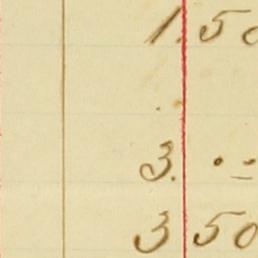 1.50
3.
3 50